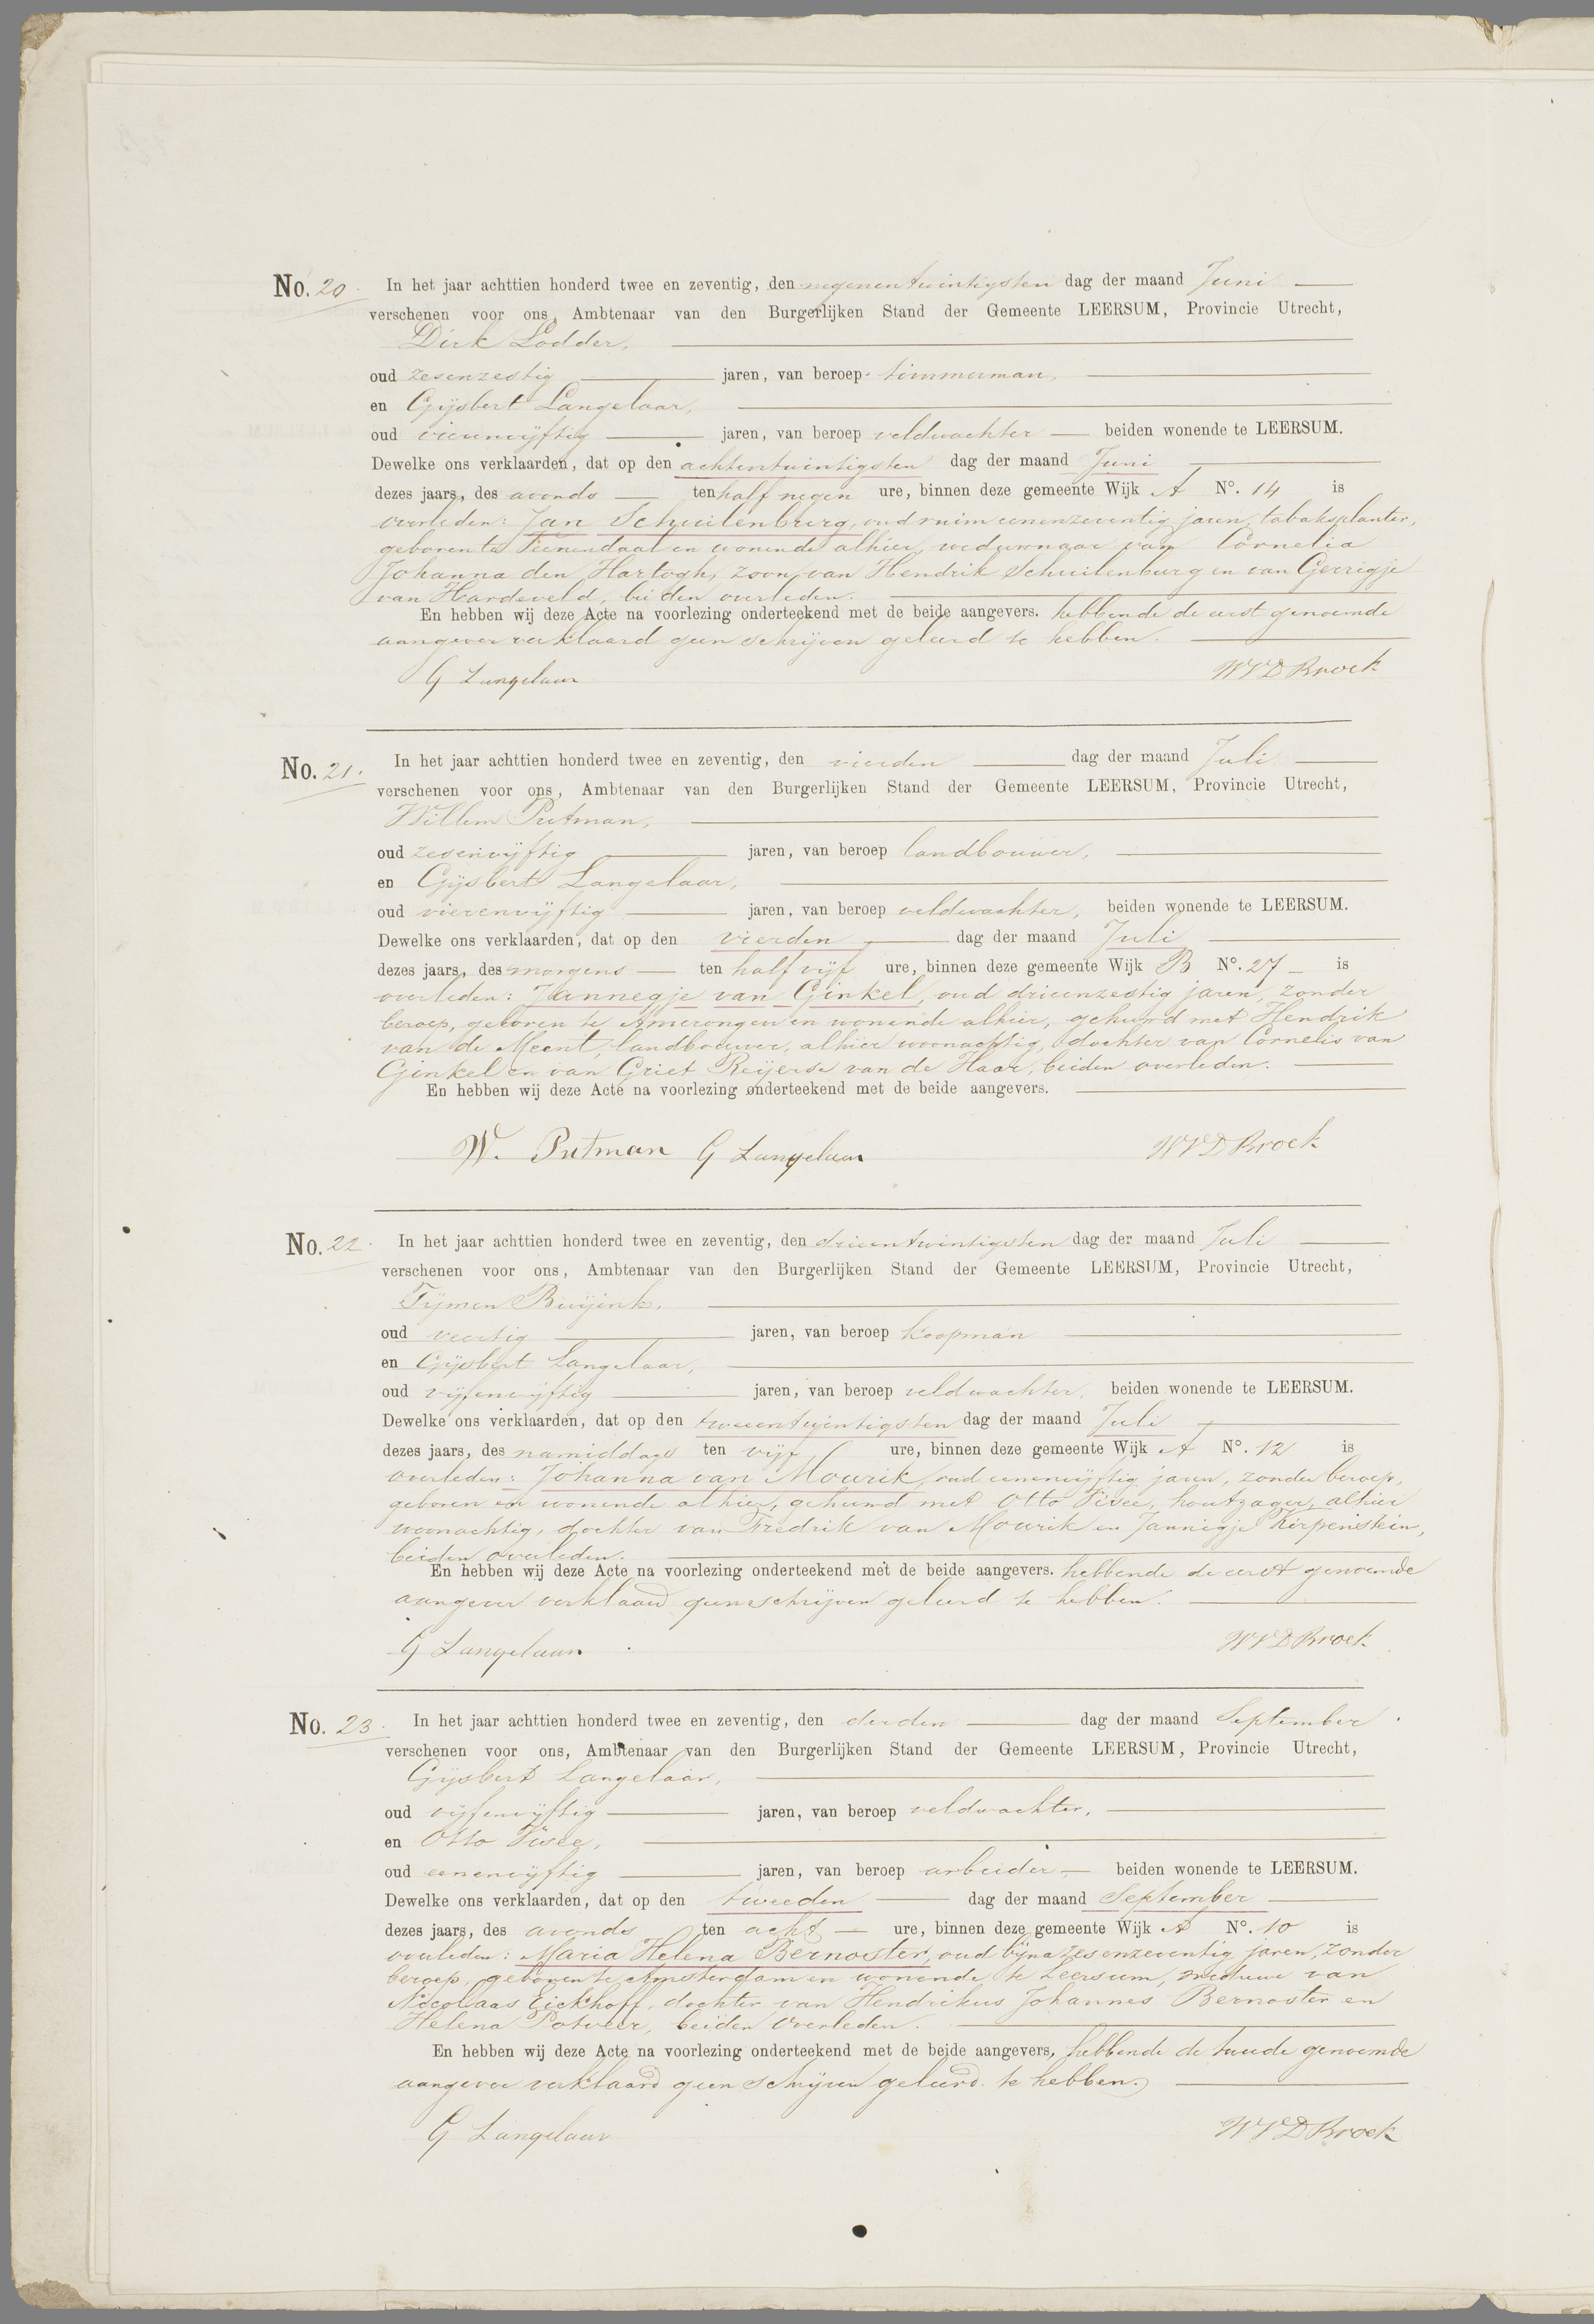 No. 20. In het jaar achttien honderd twee en zeventig, den negenentwintigsten dag der maand Juni
verschenen voor ons, Ambtenaar van den Burgerlijken Stand der Gemeente LEERSUM, Provincie Utrecht,
Dirk Lodder,
oud zesenzestig jaren, van beroep timmerman,
en Gijsbert Langelaar,
oud vierenvijftig jaren, van beroep veldwachter beiden wonende te LEERSUM.
Dewelke ons verklaarden, dat op den achtentwintigsten dag der maand Juni
dezes jaars, des avonds ten half negen ure, binnen deze gemeente Wijk A No. 14 is
overleden: Jan Schuilenburg, oud ruim eenenzeventig jaren, tabaksplanter,
geboren te Veenendaal en wonende alhier, weduwnaar van Cornelia
Johanna den Hartogh, zoon van Hendrik Schuilenburg en van Gerrigje
van Hardeveld, beiden overleden.
En hebben wij deze Acte na voorlezing onderteekend met de beide aangevers. hebbende de eerst genoemde
aangever verklaard geen schrijven geleerd te hebben.
G Langelaar WVD Broek
No. 21. In het jaar achttien honderd twee en zeventig, den vierden dag der maand Juli
verschenen voor ons, Ambtenaar van den Burgerlijken Stand der Gemeente LEERSUM, Provincie Utrecht,
Willem Putman,
oud zesenvijftig jaren, van beroep landbouwer,
en Gijsbert Langelaar,
oud vierenvijftig jaren, van beroep veldwachter, beiden wonende te LEERSUM.
Dewelke ons verklaarden, dat op den vierden dag der maand Juli
dezes jaars, des morgens ten half vijf ure, binnen deze gemeente Wijk B No. 27 is
overleden: Jannegje van Ginkel, oud drieenzestig jaren, zonder
beroep, geboren te Amerongen en wonende alhier, gehuwd met Hendrik
van de Meent, landbouwer, alhier woonachtig, dochter van Cornelis van
Ginkel en van Griet Reijerse van de Haar, beiden overleden.
En hebben wij deze Acte na voorlezing onderteekend met de beide aangevers.
W. Putman G Langelaar WVD Broek
No. 22. In het jaar achttien honderd twee en zeventig, den drieentwintigsten dag der maand Juli
verschenen voor ons, Ambtenaar van den Burgerlijken Stand der Gemeente LEERSUM, Provincie Utrecht,
Tijmen
oud veertig jaren, van beroep koopman
en Gijsbert Langelaar,
oud vijfenvijftig jaren, van beroep veldwachter, beiden wonende te LEERSUM.
Dewelke ons verklaarden, dat op den tweeentwintigsten dag der maand Juli
dezes jaars, des namiddags ten vijf ure, binnen deze gemeente Wijk A No. 12 is
overleden: Johanna van Mourik, oud eenenvijftig jaren, zonder beroep,
geboren en wonende alhier, gehuwd met Otto Visee, houtzager, alhier
woonachtig, dochter van Fredrik van Mourik en Jannigje Kirpenstein,
beiden overleden.
En hebben wij deze Acte na voorlezing onderteekend met de beide aangevers. hebbende de eerst genoemde
aangever verklaard geen schrijven geleerd te hebben.
G Langelaar WVD Broek
No. 23. In het jaar achttien honderd twee en zeventig, den derden dag der maand September
verschenen voor ons, Ambtenaar van den Burgerlijken Stand der Gemeente LEERSUM, Provincie Utrecht,
Gijsbert Langelaar,
oud vijfenvijftig jaren, van beroep veldwachter,
en Otto Visee,
oud eenenvijftig jaren, van beroep arbeider beiden wonende te LEERSUM.
Dewelke ons verklaarden, dat op den tweeden dag der maand September
dezes jaars, des avonds ten acht ure, binnen deze gemeente Wijk A No. 10 is
overleden: Maria Helena Bernoster, oud bijna zesenzeventig jaren, zonder
beroep, geboren te Amsterdam en wonende te Leersum, weduwe van
Nicolaas Eickhoff, dochter van Hendrikus Johannes Bernoster en
Helena Potveer, beiden overleden.
En hebben wij deze Acte na voorlezing onderteekend met de beide aangevers, hebbende de tweede genoemde
aangever verklaard geen schrijven geleerd te hebben.
G Langelaar WVD Broek